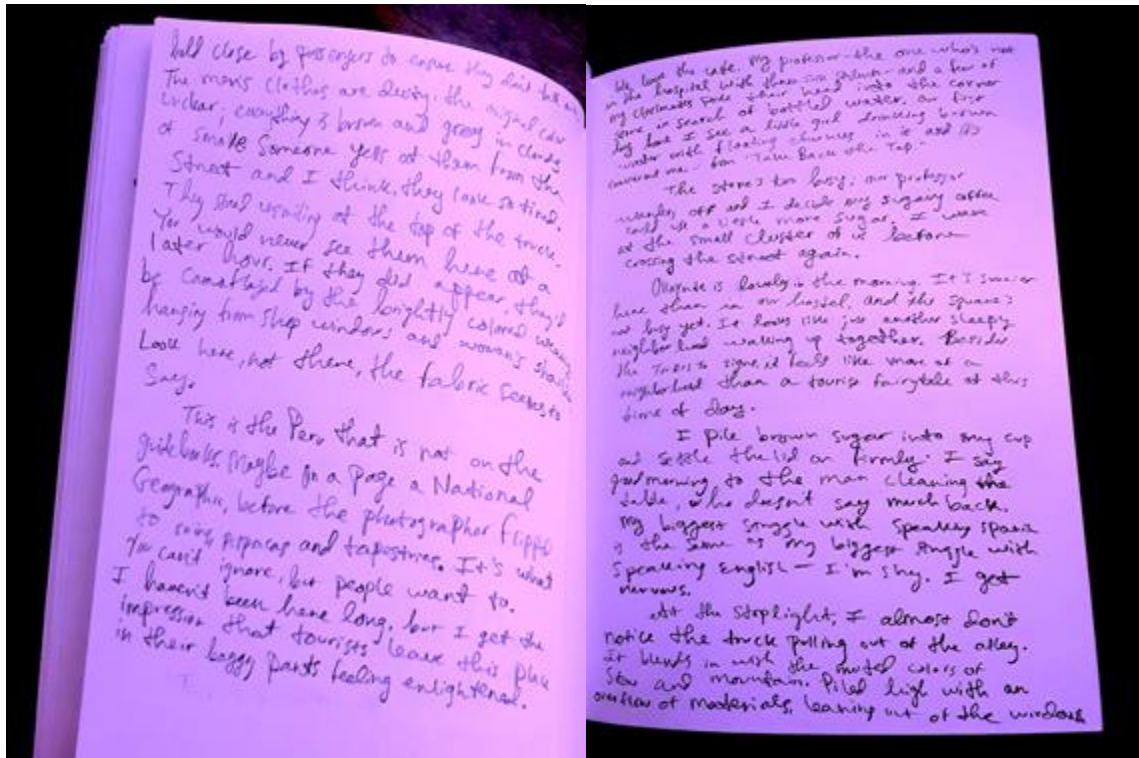 held close by passengers to ensure they don't fall out
The men's clothes are dusty; the original color
unclear; everything is brown and grey in cloudy
of smoke Someone yells at them from the
Street and I think, they look so tired.
They send up at the top of the truck.
You would never see them here at a
later hour. If they did appear, they'd
be camoflaged by the brightly colored
hanging from shop windows and woman's
Look here, not there, the fabric seems to
Say.
This is the Peru that is not on the
guidebooks. Maybe on a page a National
Geographic, before the photographer flipped
to and tapestries. It's what
You can't ignore, but people want to.
I haven't been here long, but I get the
impression that tourists leave this place
in their baggy pants feeling enlightened.
We leave the cafe. My professor—the one who's not
in the hospital with — and a few of
my classmates poke their head into the corner
store in search of bottled water. On first
I see a little girl drinking brown
water with floating in it and it's
me. from "Take Back the Tap."
The store's too busy; our professor
wanders off and I decide my sugary coffee
could use a little more sugar. I wave
at the small cluster of us before
crossing the street again.
is lovely in the morning. It's sunnier
here than in our hostel, and the square's
not busy yet. It looks like just another sleepy
neighborhood waking up together. Besides
the signs, it feels like more of a
neighborhood than a tourist fairytale at this
time of day.
I pile brown sugar into my cup
and settle the lid on firmly. I say
good morning to the man cleaning the
table, who doesn't say much back.
My biggest struggle with speaking Spanish
is the same as my biggest struggle with
speaking English — I'm shy. I get
nervous.
At the stoplight, I almost don't
notice the truck pulling out of the alley.
It blends in with the muted colors of
and mountain. Piled high with an
overflow of materials, leaning out of the windows